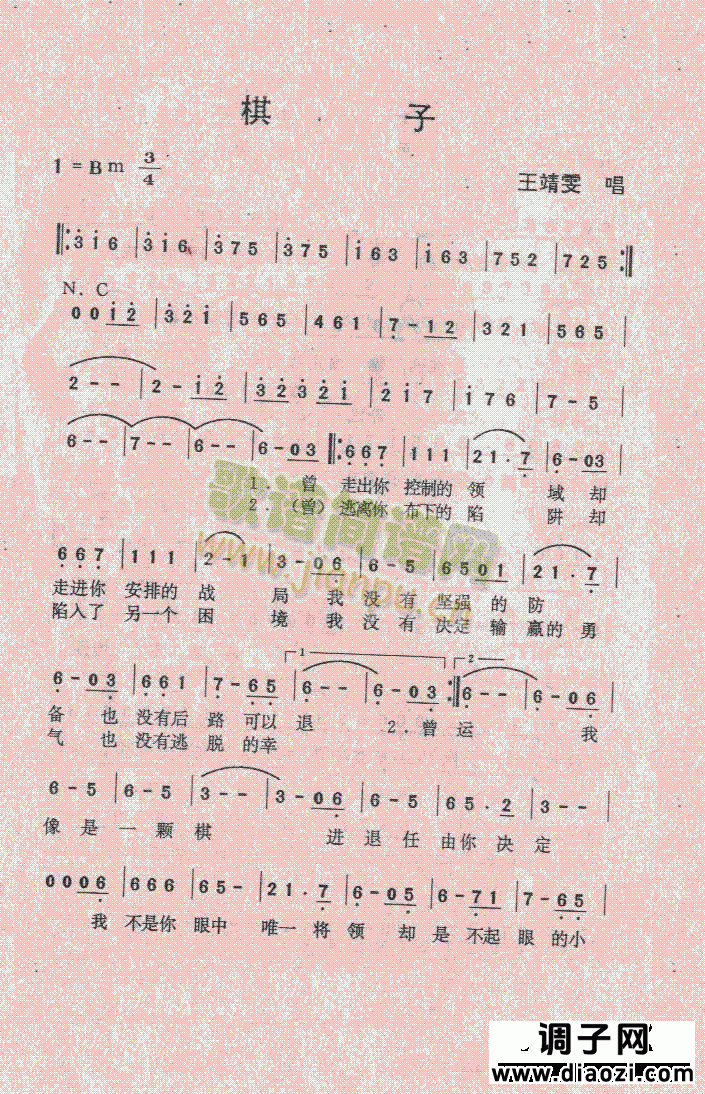 棋 子
1 = Bm 3/4
王靖雯 唱
‖: 3 1 6 | 3 1 6 | 3 7 5 | 3 7 5 | 1 6 3 | 1 6 3 | 7 5 2 | 7 2 5 :‖
N. C
0 0 1 2 | 3 2 1 | 5 6 5 | 4 6 1 | 7 - 1 2 | 3 2 1 | 5 6 5 |
2 - - | 2 - 1 2 | 3 2 3 2 2 1 | 2 1 7 | 1 7 6 | 7 - 5 |
6 - - | 7 - - | 6 - - | 6 - 0 3 ‖: 6 6 7 | 1 1 1 | 2 1 . 7 | 6 - 0 3 |
1. 曾 走出你 控制的 领 域 却
2.(曾)逃离你 布下的 陷 阱 却
歌谱简谱网
www.jianpu.c
6 6 7 | 1 1 1 | 2 - 1 | 3 - 0 6 | 6 - 5 | 6 5 0 1 | 2 1 . 7 |
走进你 安排的 战 局 我 没 有 坚强 的 防
陷入了 另一个 困 境 我 没 有 决定 输 赢的 勇
1 2
6 - 0 3 | 6 6 1 | 7 - 6 5 | 6 - - | 6 - 0 3 :‖ 6 - - | 6 - 0 6 |
备 也 没有后 路 可以 退 2. 曾 运 我
气 也 没有逃 脱 的幸
6 - 5 | 6 - 5 | 3 - - | 3 - 0 6 | 6 - 5 | 6 5 . 2 | 3 - - |
像 是 一 颗 棋 进 退 任 由你 决 定
0 0 0 6 | 6 6 6 | 6 5 - | 2 1 . 7 | 6 - 0 5 | 6 - 7 1 | 7 - 6 5 |
我 不是你 眼中 唯一 将 领 却 是 不起 眼 的小
调子网
www.diaozi.com